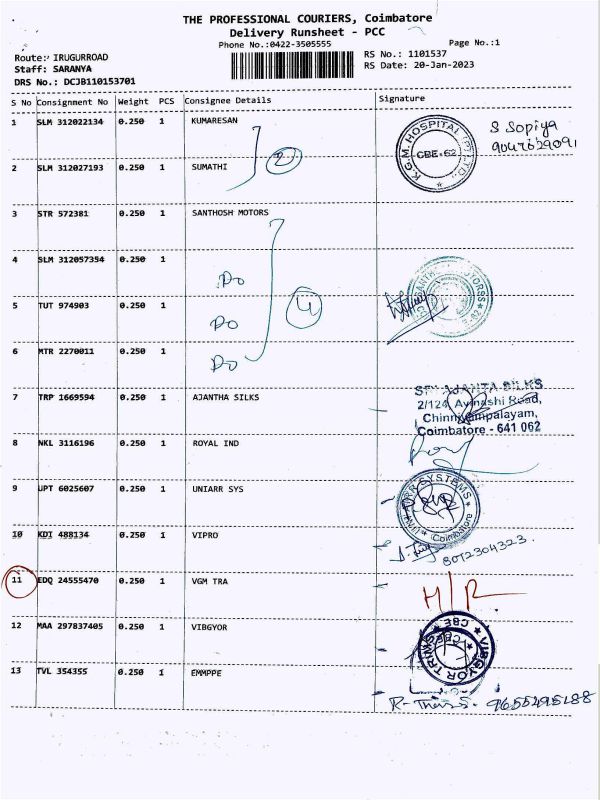 THE PROFESSIONAL COURIERS, Coimbatore
Delivery Runsheet - PCC
Phone No.:0422-3505555
Page No.:1
Route: IRUGURROAD
Staff: SARANYA
DRS No.: DCJB110153701
RS No.: 1101537
RS Date: 20-Jan-2023
S No Consignment No Weight PCS Consignee Details Signature
1 SLM 312022134 0.250 1 KUMARESAN
K.G.M. HOSPITAL (P) LTD.
CBE-62
S Sopiya
9047629091
2 SLM 312027193 0.250 1 SUMATHI
2
3 STR 572381 0.250 1 SANTHOSH MOTORS
4 SLM 312057354 0.250 1
Do
5 TUT 974903 0.250 1
4
Do
6 MTR 2270011 0.250 1
Do
7 TRP 1669594 0.250 1 AJANTHA SILKS
SRI AJANTA SILKS
2/124, Avinashi Road,
Chinniampalayam,
Coimbatore - 641 062
8 NKL 3116196 0.250 1 ROYAL IND
9 UPT 6025607 0.250 1 UNIARR SYS
SYSTEMS
Coimbatore
10 KDI 488134 0.250 1 VIPRO
8072304323.
11 EDQ 24555470 0.250 1 VGM TRA
H/R
12 MAA 297837405 0.250 1 VIBGYOR
VIBGYOR
CBE
13 TVL 354355 0.250 1 EMMPPE
9655495188